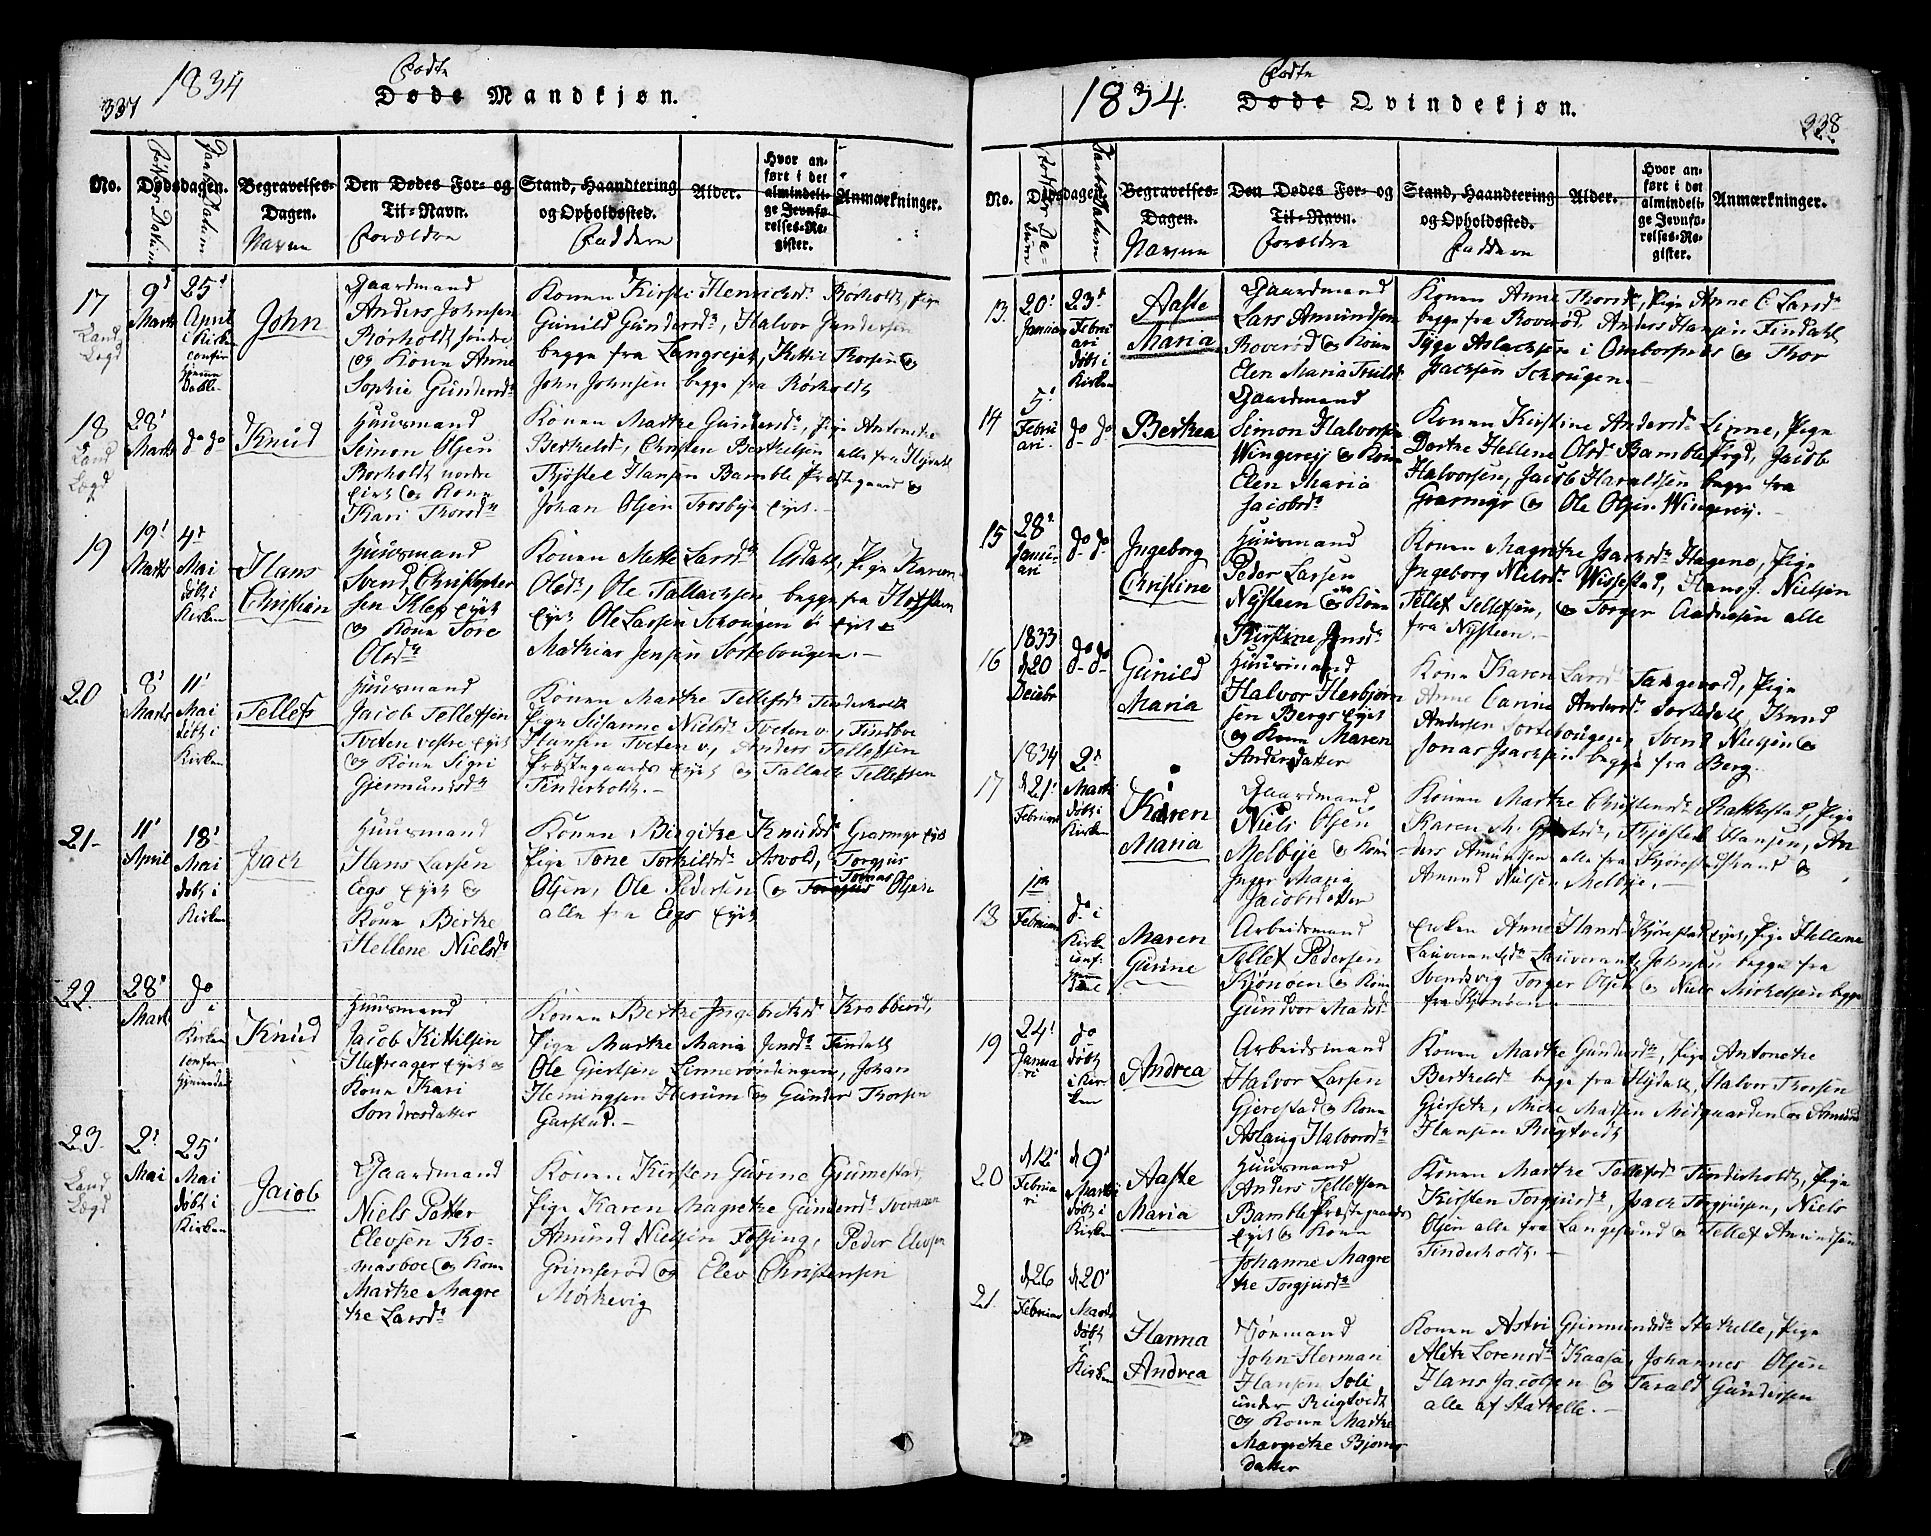 1834
337
Fødte
Døde Mandkjøn.
No.
Dødsdagen.
Begravelses-Dagen.
Navne
Den Dødes For- og Til-Navn.
Forældre
Stand, Haandtering og Opholdssted.
Faddere
Alder.
Hvor anført i det almindelige Jevnførelses-Register.
Anmærkninger.
17
Land
Lægd
9d
Marts
25'
April
i Kirken
John
Gaardmand
Anders Johnsen
Rørholdt søndre
og Kone Anne
Sophie Gundersdr
Konen Kirsti Henrichsdr Rørholdt, Pige
Gunild Gundersdr, Halvor Gundersen
begge fra Langrejet, Kittil Thorsen og
John Johnsen begge fra Rørholdt
18
Land
Lægd
28'
Marts
do do
Knud
Huusmand
Simon Olsen
Rørholdt nordre
Eyet og Kone
Kari Thorsdr
Konen Marthe Gundersdr, Pige Antonethe
Berthelsdr, Christen Berthelsen alle fra Hydalt
Kjøstel Hansen Bamble Præstegaard og
Johan Olsen Trosbye Eyet.
19
19'
Marts
4de
Mai
døbt i
Kirken
Hans
Christian
Huusmand
Svend Christopher
sen Klep Eyet
og Kone Tore
Olsdr
Konen Mette Larsdr Asdalt, Pige Karen
Olsdr, Ole Tallachsen begge fra Hafsteen
Eyet Ole Larsen Schougen i Eyet
Mathias Jensen Sortebougen.
20
8'
Marts
11'
Mai
døbt i
Kirken
Tellefs
Huusmand
Jacob Tellefsen
Tveten vestre Eyet
og Kone Sigri
Gjermundsdr
Konen Marthe Tellefsdr Tinderholt
Pige Susanne Nielsdr Tveten v., Findboe
Hansen Tveten v, Anders Tellefsen
Præstegaards Eyet og Tallach Tellefsen
Tinderholt.
21.
11'
April
18'
Mai
døbt i
Kirken
Isach
Huusmand
Hans Larsen
Eegs Eyet og
Kone Berthe
Hellene Nielsdr
Konen Birgithe Knudsdr Grasmyr Eyet
Pige Tone Torkilsdr Asvold, Torgjus
Olsen, Ole Pedersen og Torgjus Tomas Olsen
alle fra Eegs Eyet
22.
28'
Marts
do
i
Kirken
Knud
Huusmand
Jacob Kittilsen
Hafsager Eyet og
Kone Kari
Sondresdatter
Konen Berthe Ingebrethsdr Krabberød,
Pige Marthe Maria Jensdr Findalt
Ole Gjertsen Linnerøndingen, Johan
Flemingsen Herum og Gunder Thorsen
Garstad.
23.
Land
Lægd
2'
Mai
25'
Mai
døbt i
Kirken
Jacob
Gaardmand
Niels Petter
Elevsen Tho-
masboe og Kone
Marthe Magre
the Larsdr
Konen Kirsten Gurine Grumestad,
Pige Karen Magrethe Gundersdr
Amund Nielsen Fossing, Peder Elevsen
Grimserød og Elev Christensen
Mørkevig
1834.
338
Fødte
Døde Qvindekjøn.
No.
Dødsdagen.
Begravelses-Dagen.
Navne
Den Dødes For- og Til-Navn.
Forældre
Stand, Haandtering og Opholdssted.
Faddere
Alder.
Hvor anført i det almindelige Jevnførelses-Register.
Anmærkninger.
13.
20'
Januar
23'
Febru
ari
døbt i
Kirken
Aaste
Maria
Gaardmand
Lars Amundsen
Roverød og Kone
Elen Maria Trulsdr
Konen Anne Thorsdr, Pige Anne C Larsdr
begge fra Roverød, Anders Hansen Findalt
Tyge Aslachsen i Omborsnæs og Thor
Isachsen Schougen.
14
5'
Febru
ari
do do
Berthea
Gaardmand
Simon Halvorsen
Wingerej og Kone
Elen Maria
Jacobsdr
Konen Kirstine Andersdr Linne, Pige
Dorthe Hellene Olsdr Bamble Prgd, Jacob
Halvorsen, Jacob Haraldsen begge fra
Grasmyr og Ole Olsen Wingerej.
15
28'
Janu-
ari
do do
Ingeborg
Christine
Huusmand
Peder Larsen
Nysteen og Kone
Kirstine Jensdr
Konen Magrethe Isachsdr Hageno, Pige
Ingeborg Nielsdr Wissestad, Hans J. Nielsen
Tellef Tellefsen, og Torger Andersen alle
fra Nysteen.
16
1833
d 20
Decbr
do do
Gunild
Maria
Huusmand
Halvor Herbjørn
sen Bergs Eyet
og Kone Maren
Andersdatter
Kone Karen Larsdr Tangevod, Pige
Anne Carine Andersdr Sortedalt, Knud
Andersen Sortebougen, Svend Nielsen og
Jonas Isachsen begge fra Berg.
17
1834
d 21'
Februar
2'
Marts
døbt i
Kirken
Karen
Maria
Gaardmand
Niels Olsen
Melbye og Kone
Inger Maria
Jacobsdatter
Konen Marthe Christensdr Rakkestad, Pige
Karen M. Gjertsdr, Kjøstel Hansen, An
ders Amundsen alle fra Kjørestadstrand og
Amund Nielsen Melbye.
18
1ste
Februar
do i
Kirken
Maren
Gurine
Arbeidsmand
Tellef Pedersen
Kjønøen og Kone
Gundvor Madsdr
Enken Anne Hansdr Kjørestad Eyet, Pige Hellene
Lauverantsdr Lauverants Johnsen begge fra
Svendsvig Torger Olsen og Niels Mickelsen begge
fra Kjønøen.
19
24'
Janua
ri
do
døbt
i Kir-
ken
Andrea
Arbeidsmand
Halvor Larsen
Gjerestad og Kone
Aslaug Halvorsdr
Konen Marthe Gundersdr, Pige Antonethe
Berthelsdr begge fra Hydalt, Halvor Thorsen
Gjerseth, Miche Madsen Midgaarden og Amund
Hansen Rugtvedt
20
d 12'
Februa
ri
d 9'
Marts
døbt i
Kirken
Aaste
Maria
Huusmand
Anders Tellefsen
Bamble Præstegaards
Eyet og Kone
Johanne Magre
the Torgjusdr
Konen Marthe Tallefsdr Tinderholt, Pige
Kirsten Torgjusdr, Isach Torgjusen, Niels
Olsen alle fra Langesund og Tellef Amundsen
Tinderholdt.
21.
d 26
Februar
d 20'
Marts
døbt
i
Kirken
Hanna
Andrea
Sømand
John Herman
Hansen Soli
under Rugtvedt
og Kone Marthe
Margrethe Bjørns
datter
Konen Astri Gjermundsdr Stathelle, Pige
Alethe Lorensdr Kaasa, Johannes Olsen
Hans Jacobsen og Tarald Gundersen
alle af Stathelle.